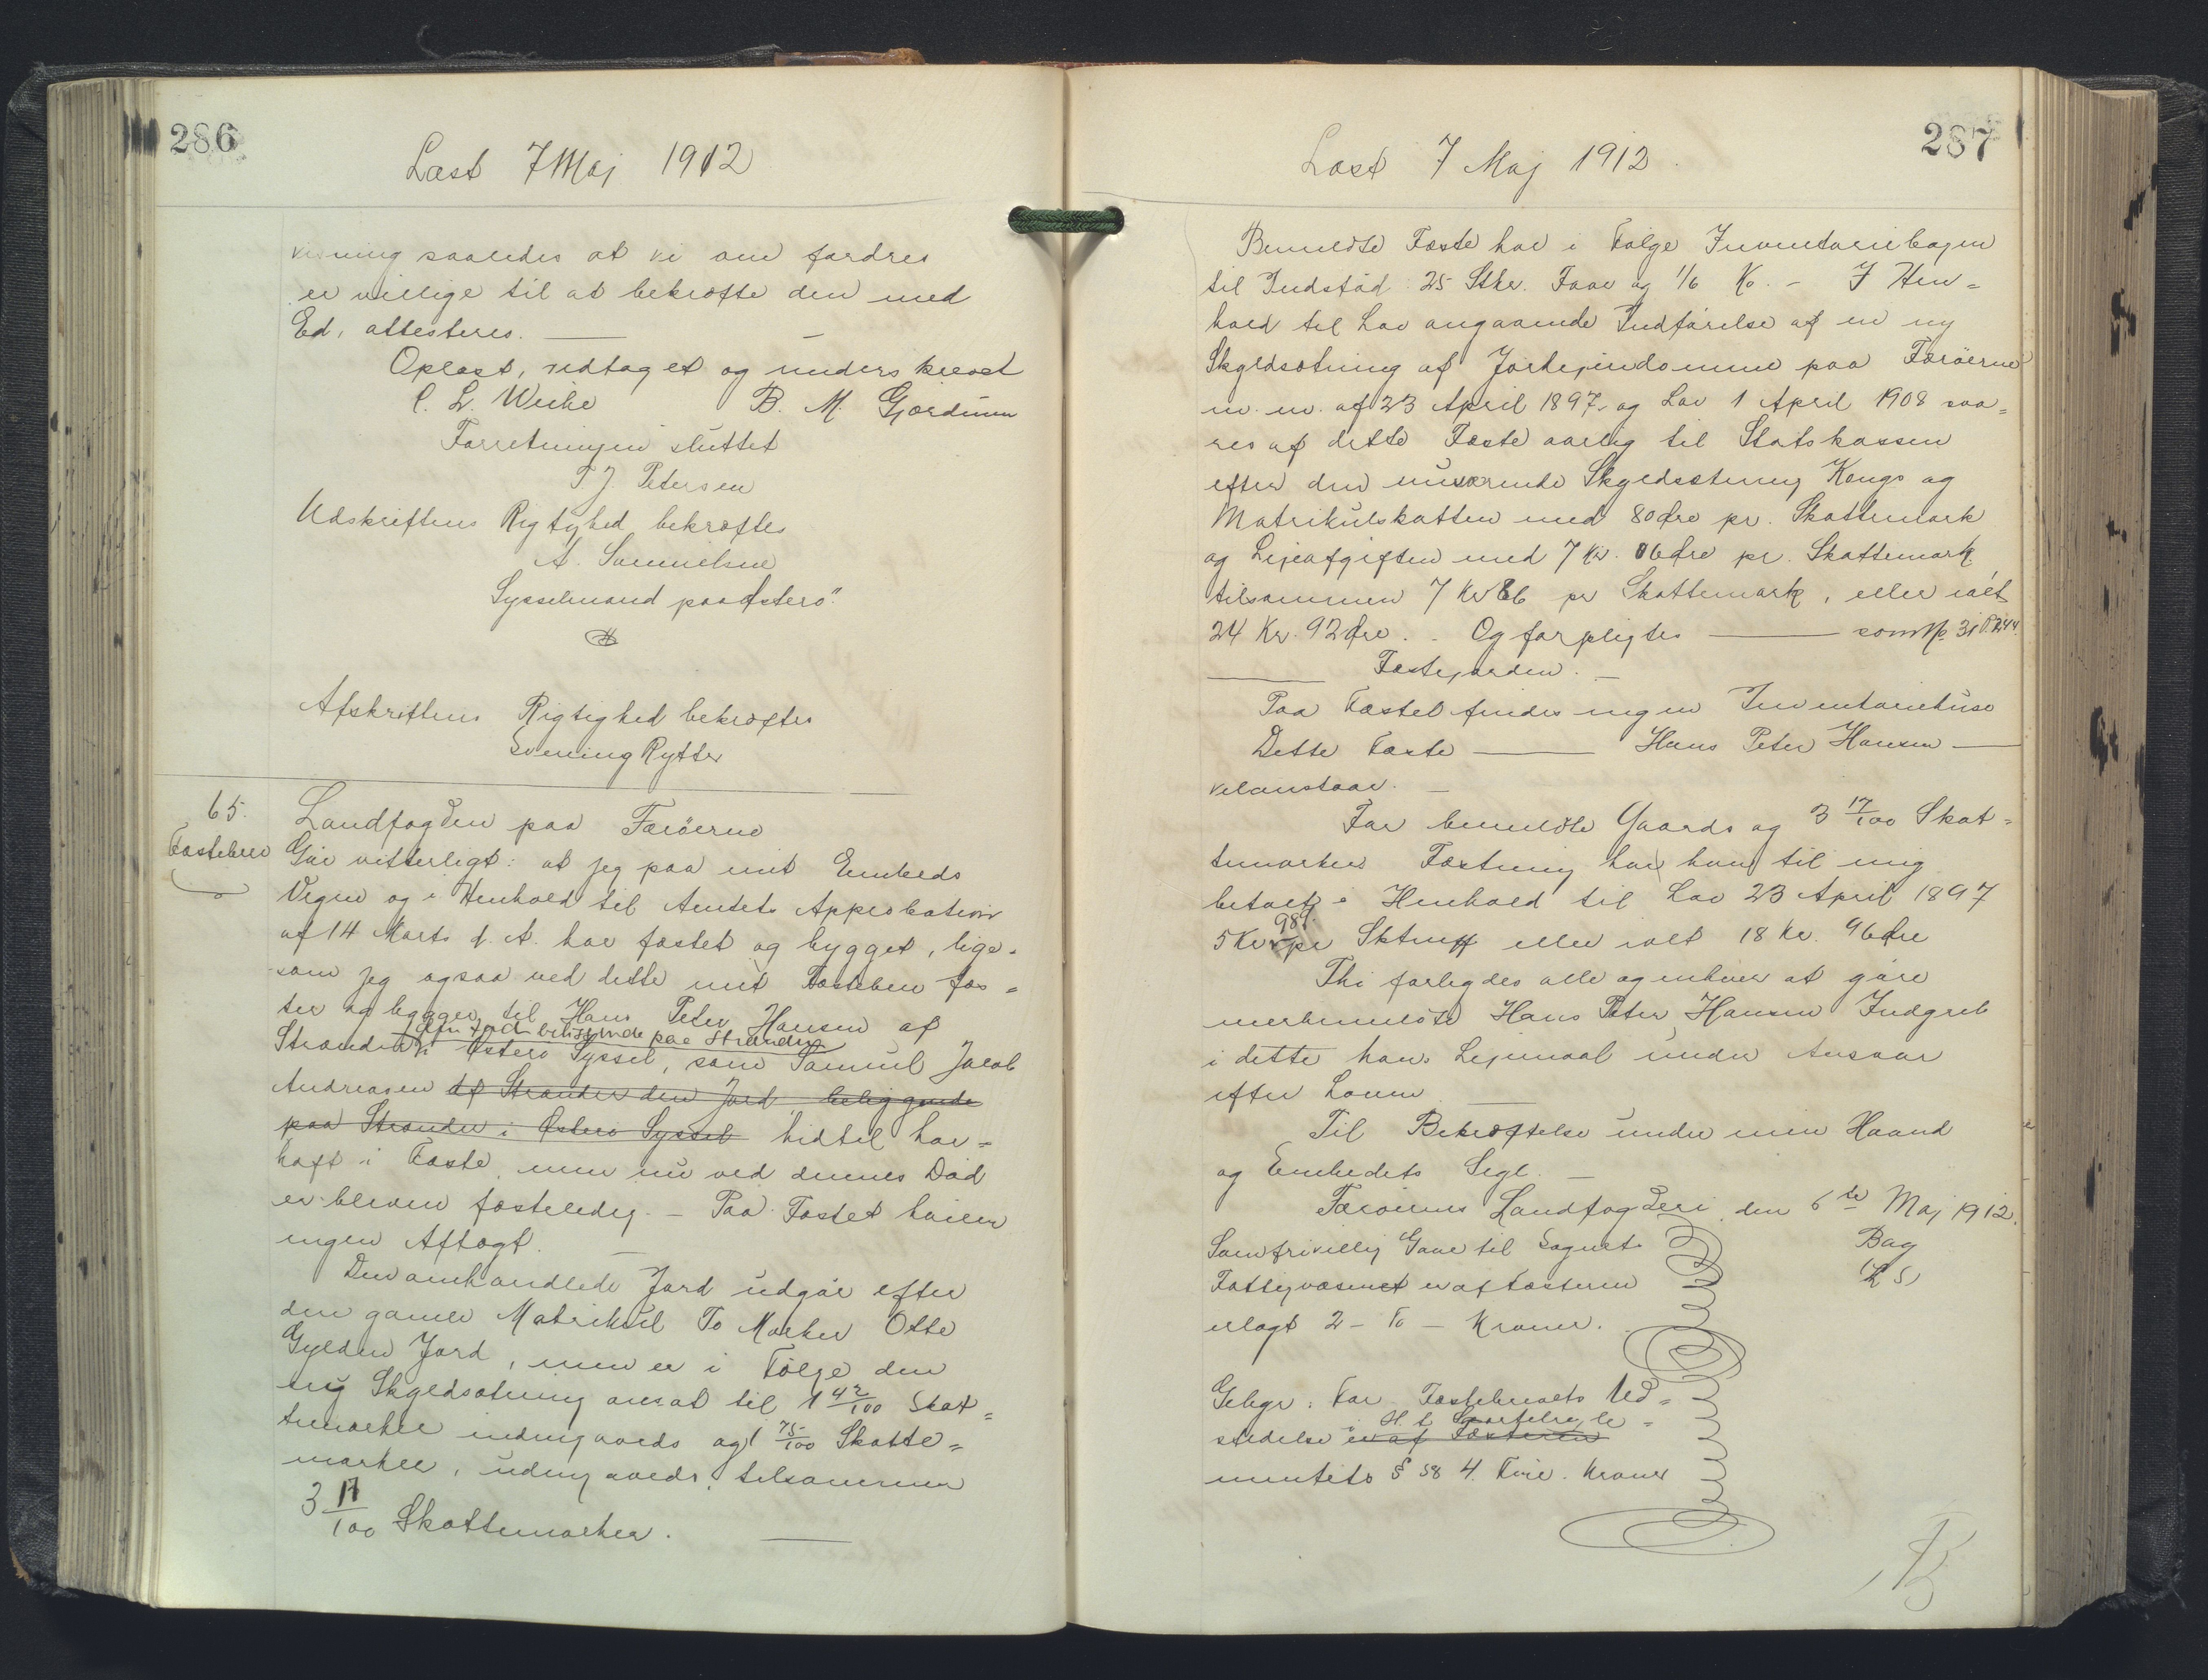 286
Læst 7 Maj 1912
visning saaledes at vi om fordres
er villige til at bekræfte den med
Ed, attesteres. —
Oplæst, vedtaget og underskrevet
C. L. Weihe B. M. Gjordum
Forretningen sluttet
T. J. Petersen
Udskriftens Rigtighed bekræftes
A. Samuelsen
Sysselmand paa Østerö."
Afskriftens Rigtighed bekræftes
Svenning Rytter
65. Landfogden paa Færöerne
Fæstebrev Gör vitterligt: at jeg paa mit Embeds
Vegne og i Henhold til Amtets Approbation
af 14 Marts d. A. har fæstet og bygget, lige-
som jeg ogsaa ved dette mit Fæstebrev fæs-
ter og bygger til Hans Peter Hansen af
den Jord beliggende paa Strander
Strander i Österö Syssel, som Samuel Jacob
Andreasen af Strander den Jord, beliggende
paa Strander i Österö Syssel hidtil har-
haft i Fæste, men nu ved dennes Död
er bleven fæsteledig. — Paa Fæstet hviler
ingen Aftægt. —
Den omhandlede Jord udgör efter
den gamle Matrikul To Marker Otte
Gylden Jord, men er i Fölge den
ny Skyldsætning ansat til 1 42/100 Skat=
temarker indengaards og 1 75/100 Skatte=
marker, udengaards, tilsammen
3 17/100 Skattemarker. —
287
Læst 7 Maj 1912.
Bemeldte Fæste har i Fölge Inventariebogen
til Indstöd: 25 Stkr. Faar og 1/6 Ko. - I Hen=
hold til Lov angaaende Indförelse af en ny
Skyldsætning af Jordejendomme paa Færöerne
m. m. af 23 April 1897. og Lov 1 April 1908 sva=
res af dette Fæste aarlig til Statskassen
efter den nuværende Skyldsætning Kongs og
Matrikulskatten med 80 Øre pr. Skattemark
og Lejeafgiften med 7 Kr. 06 Øre pr. Skattemark
tilsammen 7 Kr 86 pr Skattemark, eller ialt
24 Kr. 92 Øre. - Og forpligtes — som No 31 P. 244
— Fæstejorden. —
Paa Fæstet findes ingen Inventariehuse
Dette Fæste — Hans Peter Hansen —
velanstaar. —
For bemeldte Gaards og 3 17/100 Skat=
temarkers Fæstning har han til mig
betalt i Henhold til Lov 23 April 1897
98 Ø.
5 Kr pr Sktmk eller ialt 18 Kr. 96 Øre
Thi forbydes alle og enhver at göre
merbemeldte Hans Peter Hansen Indgreb
i dette hans Lejemaal under Ansvar
efter Loven —
Til Bekræftelse under min Haand
og Embedets Segl. —
Færöernes Landfogderi, den 6te Maj 1912.
Som frivillig Gave til Sognets Bag
Fattigvæsenet er af Fæsteren L S
erlagt 2 - To - Kroner.
Gebyr: For Fæstebrevets Ud=
i H. t. Sportelre le=
stedelse er af Fæsteren
mentets § 58 4. Fire. Kroner